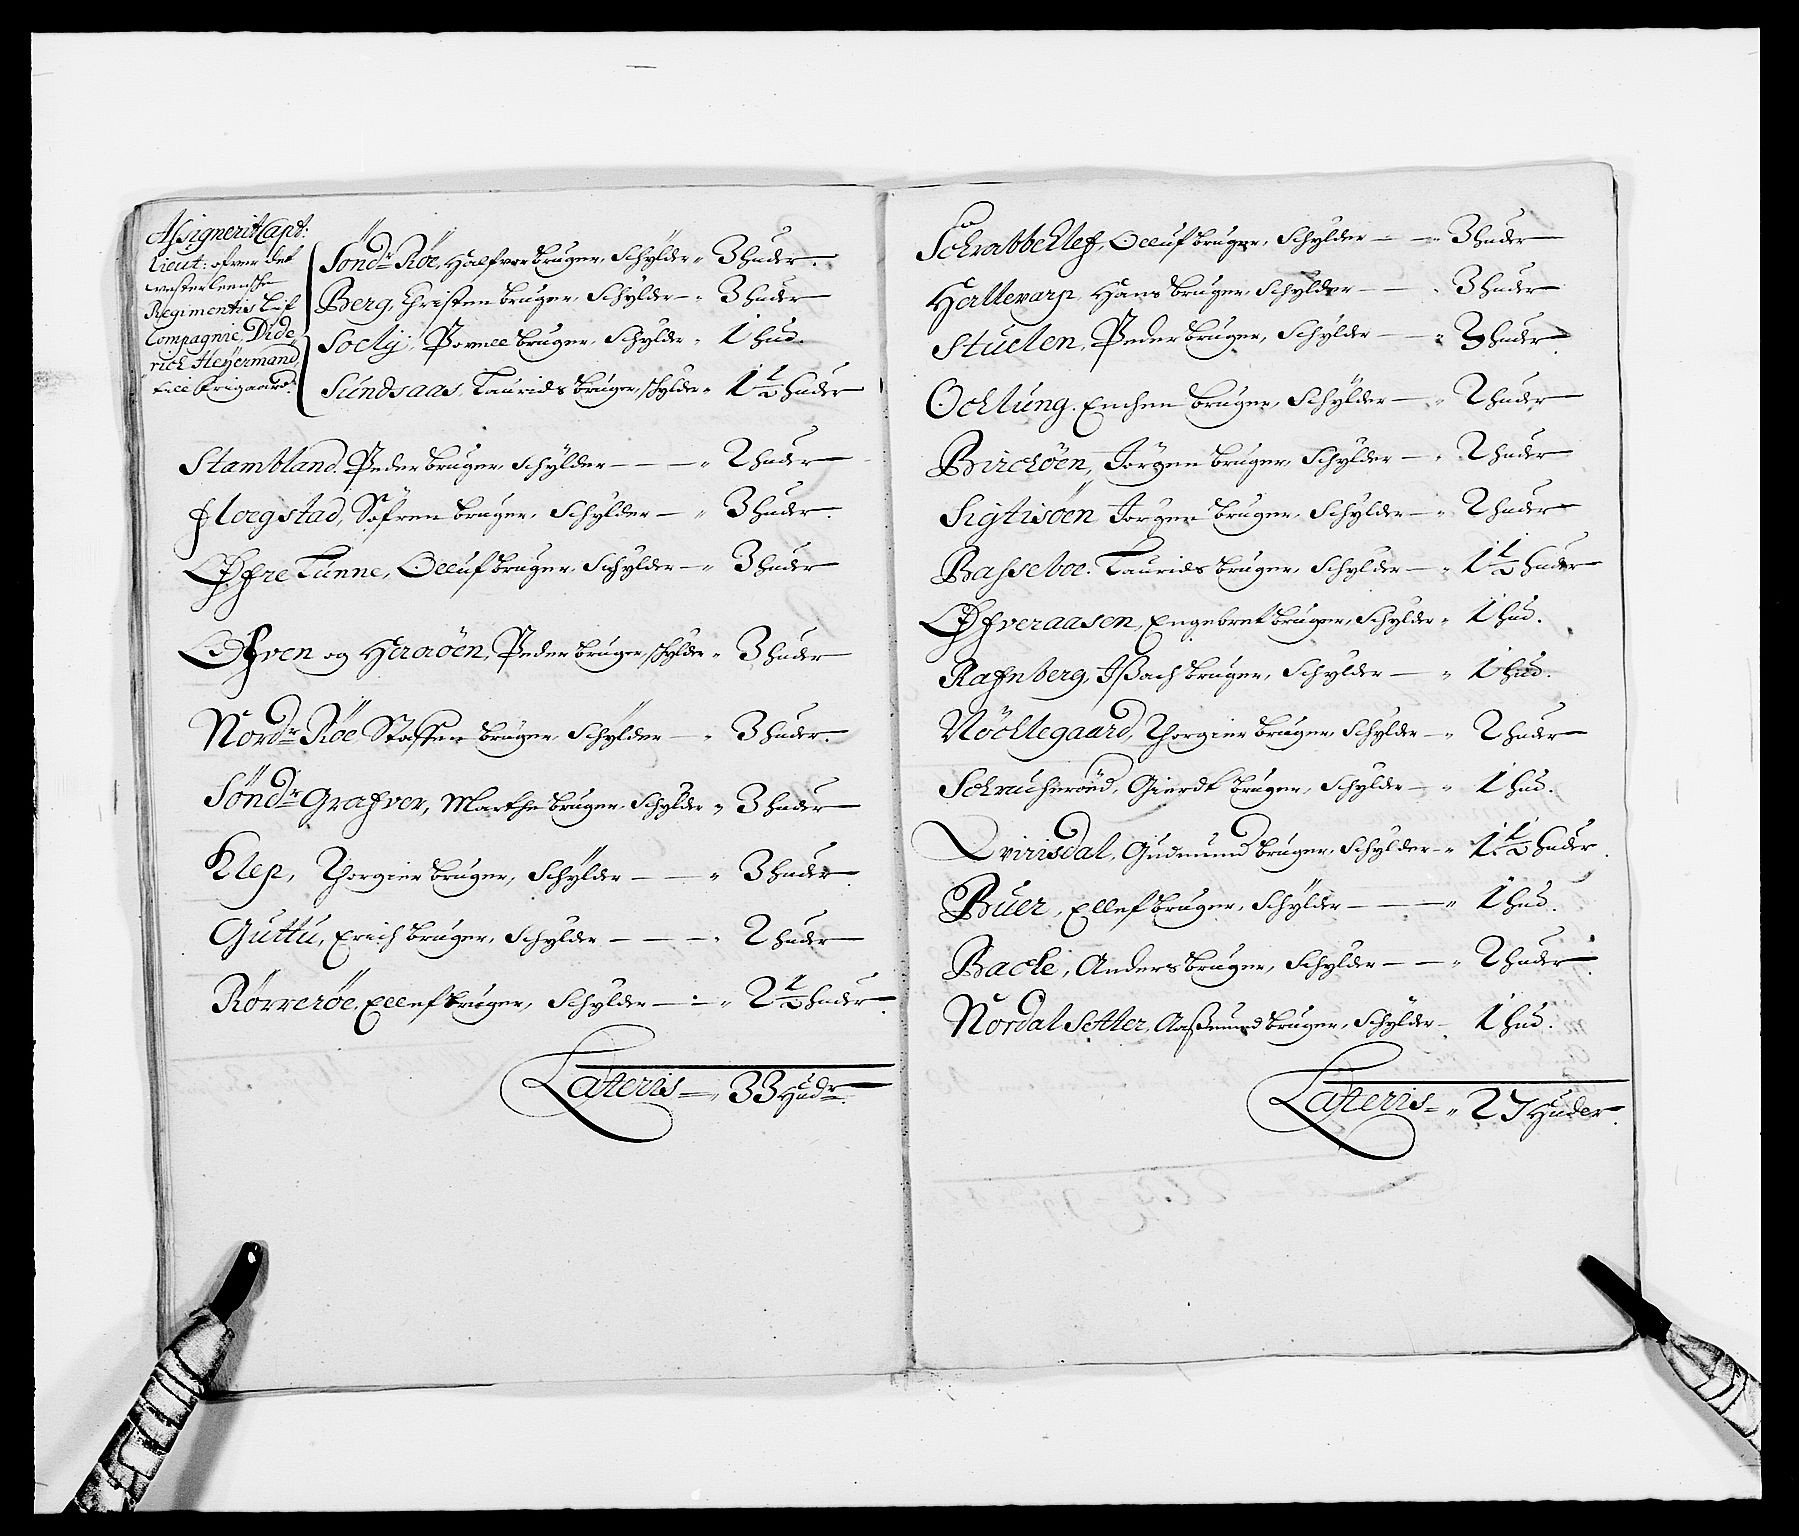 Assignerit Capt:
Lieut: ofver det
vesterleensche
Regimentis Lif
Compagnie, Dide,
rich Heyermand,
till Frigaard.
Sönd.r Röe, Halfvor bruger, Schylder " 3 huder.
Berg, Christen bruger, Schylder — " 3 huder
Socly, Povuel bruger, Schylder " 1 hud.
Sundsaas, Laurids bruger, schylder " 1 1/2 huder
Stambland, Peder bruger, Schylder — — — " 2 huder
Floegstad, Söfren bruger, Schylder — " 3 huder.
Øfre Tunne, Olluf bruger, Schylder — " 3 huder
Øfven og Haaröen, Peder bruger, schylder " 3 huder
Nord.r Röe Staffen bruger, Schylder — " 3 huder.
Sönd.r Grafver, Marthe bruger, Schylder " 3 huder
Klep, Thorgier bruger, Schylder — — " 3 huder.
Guttu, Erich bruger, Schylder — — — " 2 huder
Rörreröe, Ellef bruger, Schylder — — " 2 1/2 huder.
Lateris — " 33 Hud.r
Schrabbeklef, Olluf bruger, Schylder — — " 3 huder
Hallevarp, Hans bruger, Schylder — — " 3 huder
Stuclen, Peder bruger, Schylder — " 3 huder.
Ochlung, Enchen bruger, Schylder — " 2 huder
Birchöen, Jörgen bruger, Schylder — " 2 huder
Sigtisöen Jörgen bruger, Schylder — " 2 huder
Basseboe, Laurids bruger, Schylder — " 1 1/2 huder
Øfveraasen, Engebret bruger, Schylder " 1 hud.
Rafnberg, Ißach bruger, Schylder — " 1 hud.
Nöchlegaard, Thorgier bruger, Schylder — " 2 huder
Schruheröed, Gierdt bruger, Schylder — " 1 hud.
Qvirisdal, Gudmund bruger, Schylder — " 1 1/2 huder.
Buer, Ellef bruger, Schylder — — — " 1 hud.
Backe, Anders bruger, Schylder — — " 2 huder.
Nordal Setter, Aaßmund bruger, Schylder — 1 hud.
Lateris — " 27 Huder.